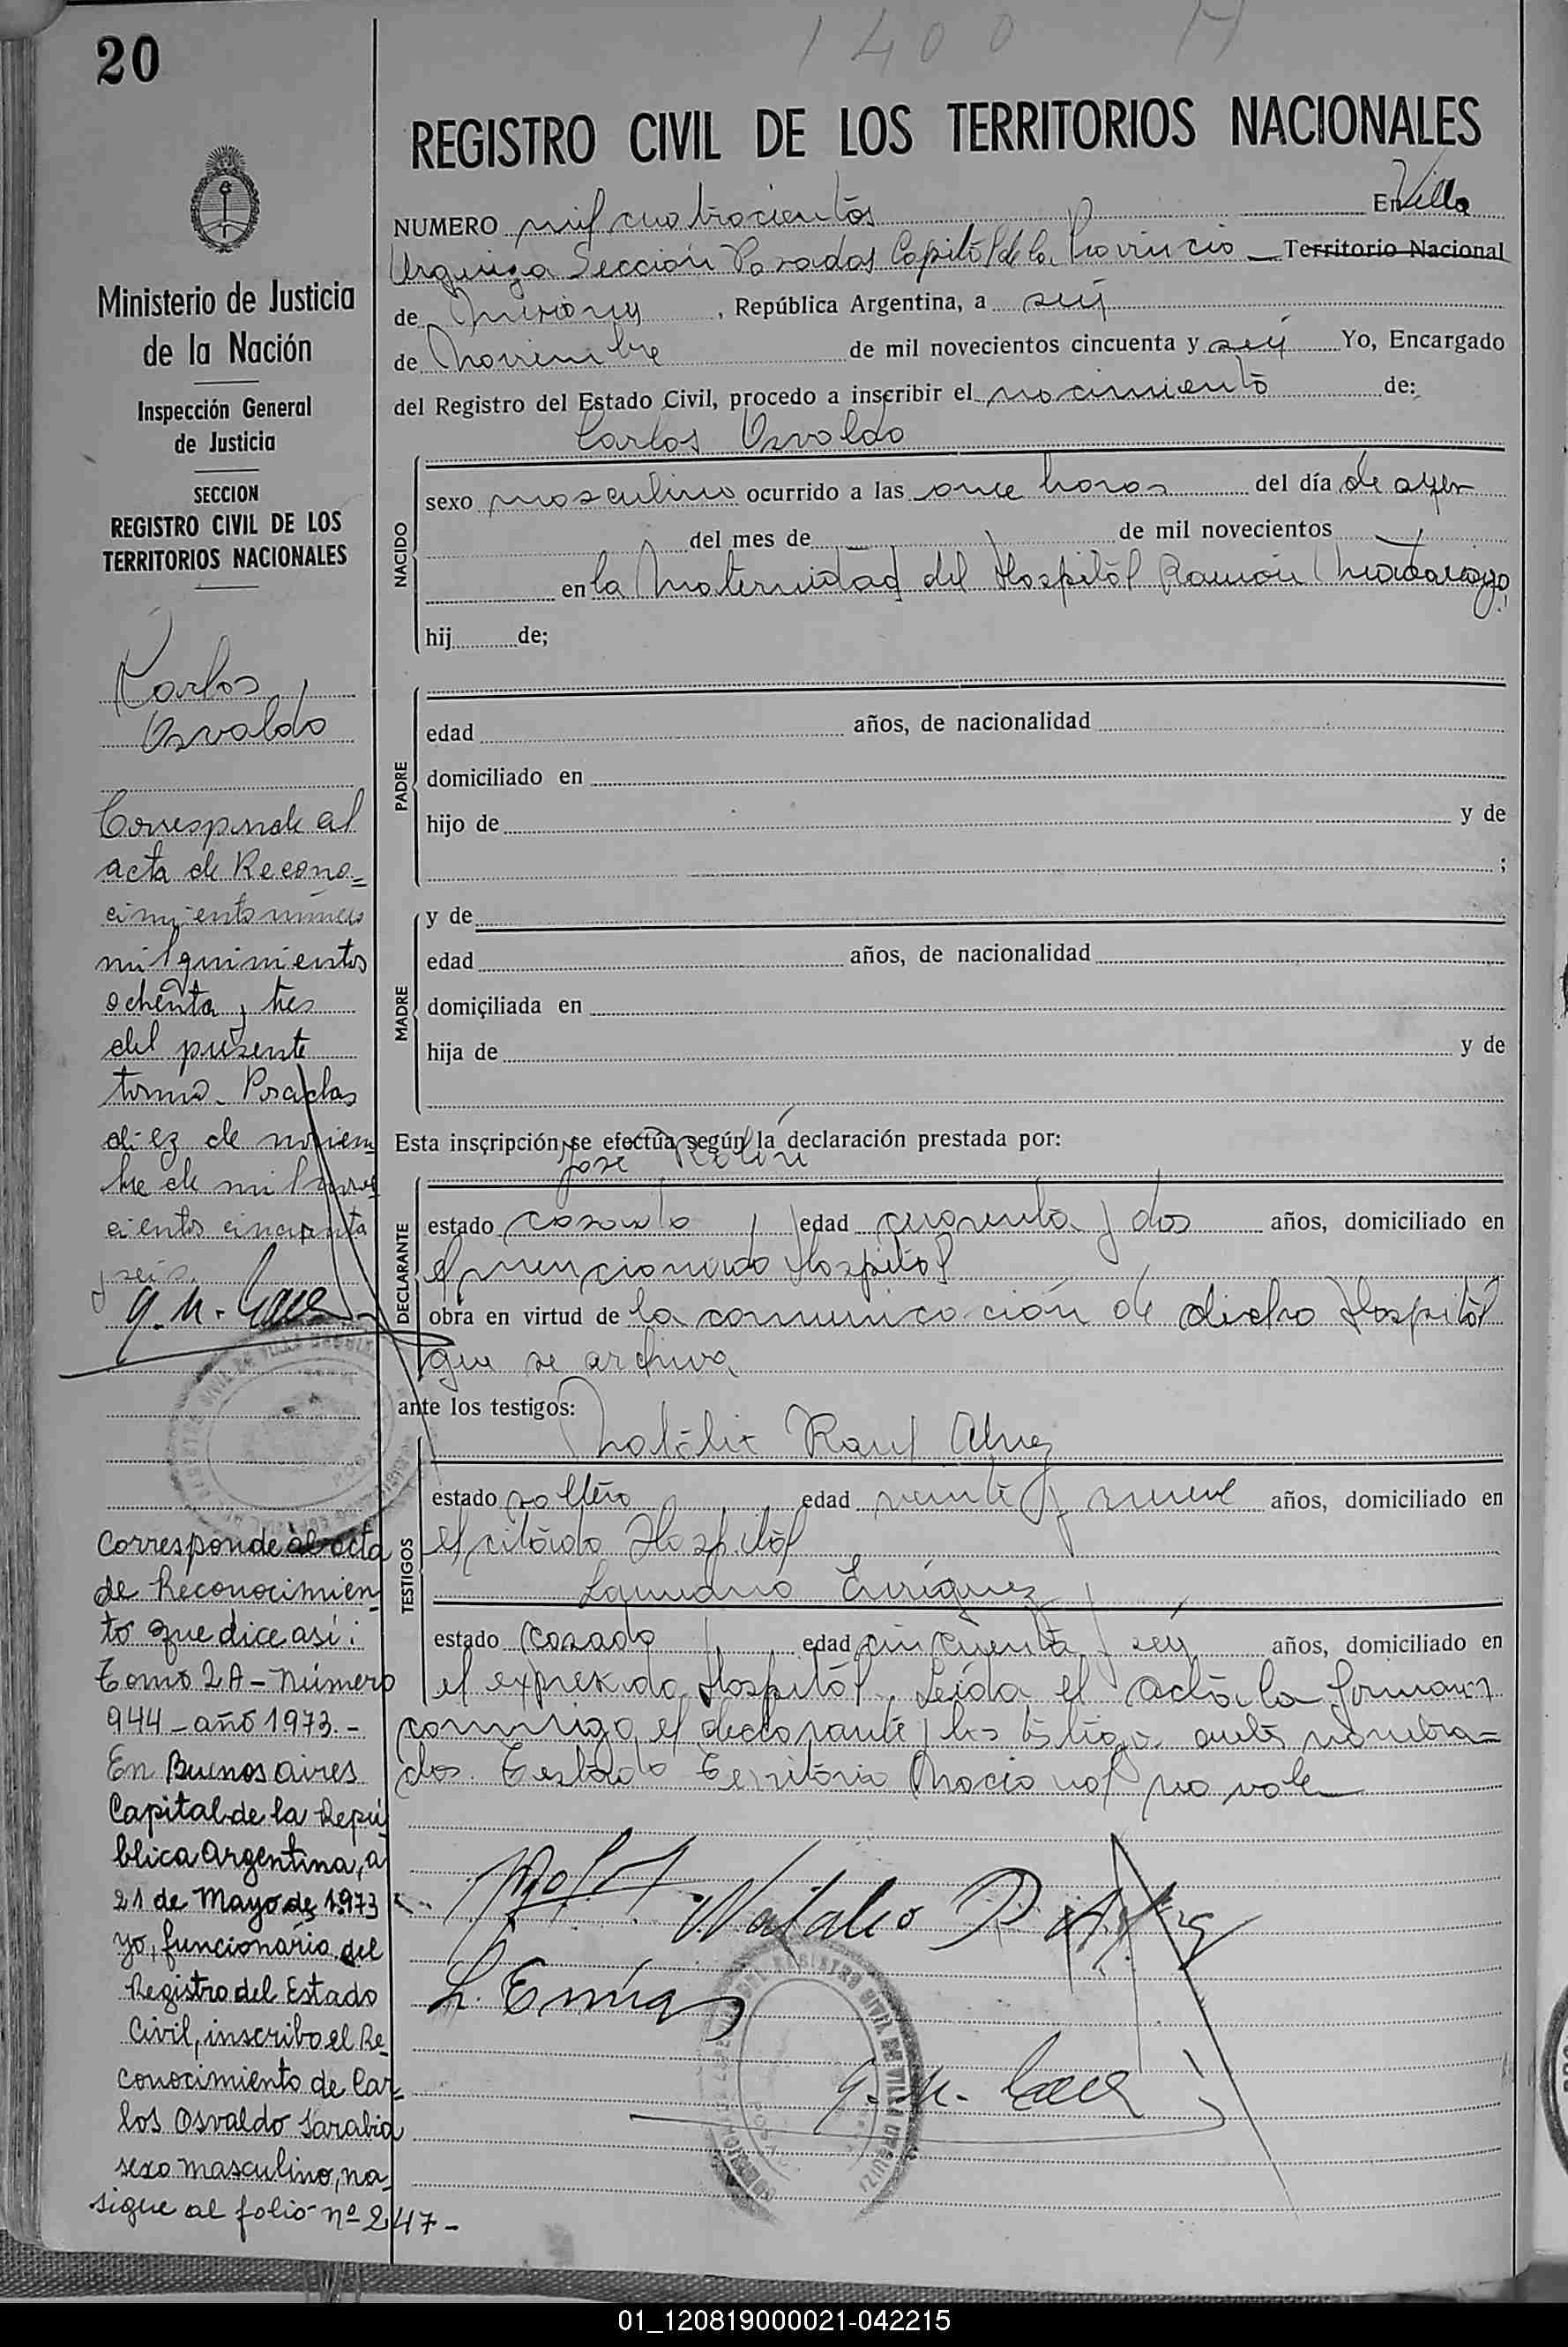 20
1400 A
REGISTRO CIVIL DE LOS TERRITORIOS NACIONALES
NUMERO mil cuatrocientos En Villa
Urquiza Sección Posadas Capital de la Provincia Territorio Nacional
de Misiones, República Argentina, a seis
de Noviembre de mil novecientos cincuenta y seis Yo, Encargado
del Registro del Estado Civil, procedo a inscribir el nacimiento de:
Carlos Osvaldo
NACIDO
sexo masculino ocurrido a las once horas del día de ayer
del mes de de mil novecientos
en la Maternidad del Hospital Ramón Madariaga,
hij de;
PADRE
edad años, de nacionalidad
domiciliado en
hijo de y de
;
MADRE
y de
edad años, de nacionalidad
domiciliada en
hija de y de
Esta inscripción se efectúa según la declaración prestada por:
José
DECLARANTE
estado casado, edad cuarenta y dos años, domiciliado en
el mencionado Hospital
obra en virtud de la comunicación de dicho Hospital
que se archiva
ante los testigos:
Natalio Raul
TESTIGOS
estado soltero edad veinte y nueve años, domiciliado en
el citado Hospital
Enriquez
estado casado, edad cincuenta y seis años, domiciliado en
el expresado Hospital. Leída el acta la firmaron
conmigo el declarante y los testigos antes nombra=
dos. Testado Territorio Nacional no vale
Natalio R.
L.
G. M.
Ministerio de Justicia
de la Nación
Inspección General
de Justicia
SECCION
REGISTRO CIVIL DE LOS
TERRITORIOS NACIONALES
Carlos
Osvaldo
Corresponde al
acta de Recono=
cimiento número
mil quinientos
ochenta y tres
del presente
tomo. Posadas
diez de noviem
bre de mil nove
cientos cincuenta
y seis.
G. M.
Corresponde al acta
de Reconocimien
to que dice así:
Tomo 2A - Número
944 - año 1973.-
En Buenos Aires
Capital de la Repú
blica Argentina, a
21 de Mayo de 1973
yo, funcionario del
Registro del Estado
Civil, inscribo el Re
conocimiento de Car
los Osvaldo Sarabia
sexo masculino, na
sigue al folio nº 247-
01_120819000021-042215